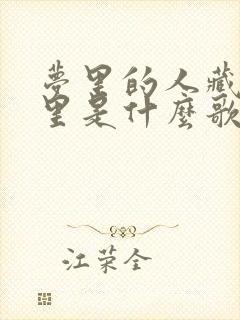 梦里的人藏
里是什麽歌
江荣全